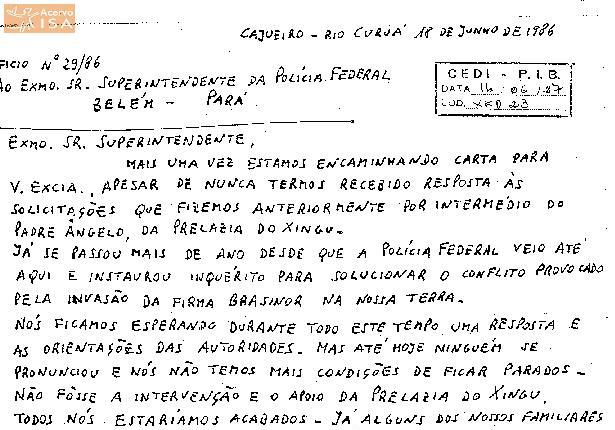 Acervo
ISA
CAJUEIRO - RIO CURUÁ 18 DE JUNHO DE 1986
FICIO Nº 29/86
AO EXMO. SR. SUPERINTENDENTE DA POLÍCIA FEDERAL
BELÉM - PARÁ
CEDI - P.I.B.
DATA 16 06 87
COD. XKD 23
EXMO. SR. SUPERINTENDENTE,
MAIS UMA VEZ ESTAMOS ENCAMINHANDO CARTA PARA
V. EXCIA., APESAR DE NUNCA TERMOS RECEBIDO RESPOSTA ÀS
SOLICITAÇÕES QUE FIZEMOS ANTERIORMENTE POR INTERMÉDIO DO
PADRE ÂNGELO, DA PRELAZIA DO XINGU.
JÁ SE PASSOU MAIS DE ANO DESDE QUE A POLÍCIA FEDERAL VEIO ATÉ
AQUI E INSTAUROU INQUÉRITO PARA SOLUCIONAR O CONFLITO PROVOCADO
PELA INVASÃO DA FIRMA BRASINOR NA NOSSA TERRA.
NÓS FICAMOS ESPERANDO DURANTE TODO ESTE TEMPO UMA RESPOSTA E
AS ORIENTAÇÕES DAS AUTORIDADES. MAS ATÉ HOJE NINGUÉM SE
PRONUNCIOU E NÓS NÃO TEMOS MAIS CONDIÇÕES DE FICAR PARADOS -
NÃO FÔSSE A INTERVENÇÃO E O APOIO DA PRELAZIA DO XINGU,
TODOS NÓS ESTARÍAMOS ACABADOS - JÁ ALGUNS DOS NOSSOS FAMILIARES